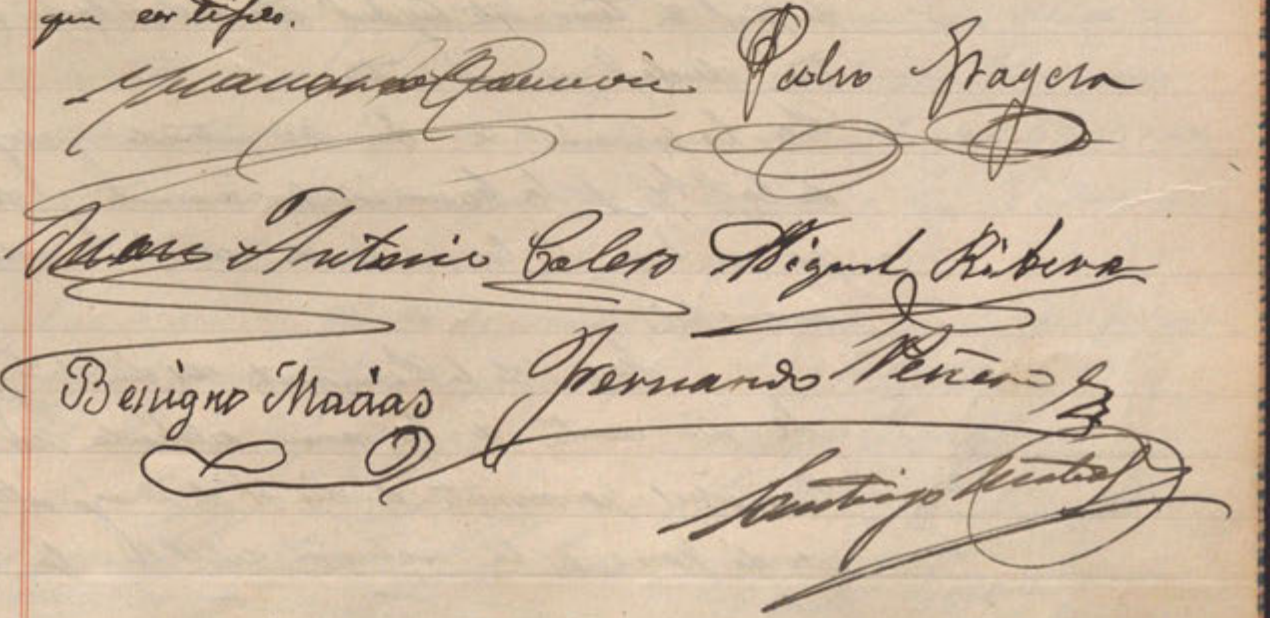 que certifico.
Pedro Fragera
Juan Antonio Calero Miguel Ribera
Benigno Macias Fernando Peñero
Santiago